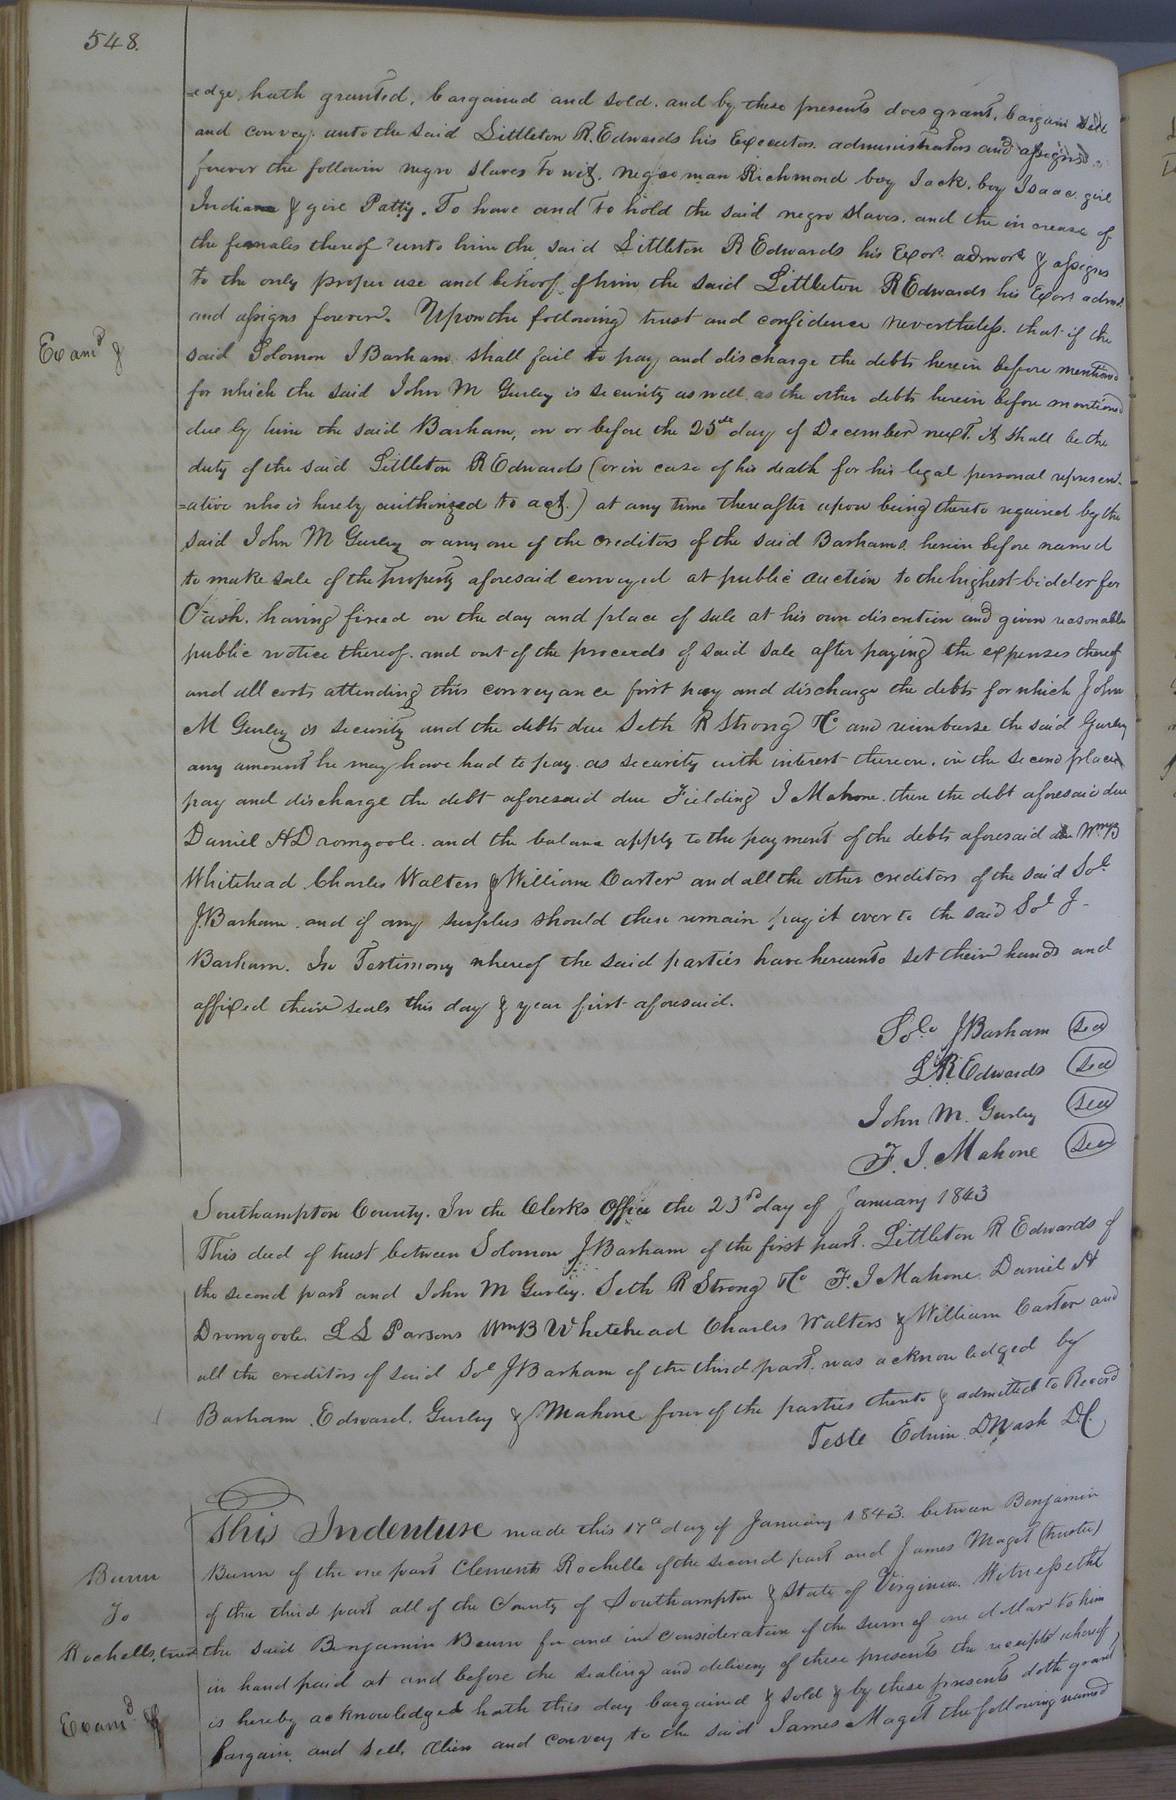 548.
=edge, hath granted, bargained and sold, and by these presents does grant, bargain sell
and convey unto the said Littleton R. Edwards his Executors administrators and assigns
forever the followin negro slaves to wit, negro man Richmond boy Jack, boy Isaac girl
Indiana & girl Patty. To have and to hold the said negro slaves, and the increase of
the females thereof unto him the said Littleton R Edwards his Exors. admors & assigns
to the only proper use and behoof of him the said Littleton R Edwards his Exors admrs
and assigns forever. Upon the following trust and confidence nevertheless. that if the
Examd &
said Solomon J Barham shall fail to pay and discharge the debts herein before mentioned
for which the said John M Gurley is security as well as the other debts herein before mentioned
due by him the said Barham, on or before the 25th day of December next. it shall be the
duty of the said Littleton R Edwards (or in case of his death for his legal personal represent.
=ative who is hereby authorized to act.) at any time thereafter upon being thereto required by the
said John M Gurley or any one of the creditors of the said Barhams herein before named
to make sale of the property aforesaid conveyed at public auction to the highest bidder for
Cash. having fixed on the day and place of sale at his own discretion and given reasonable
public notice thereof. and out of the proceeds of said sale after paying the expenses thereof
and all costs attending this conveyance first pay and discharge the debts for which John
M Gurley is security and the debts due Seth R Strong &Co and reimburse the said Gurley
any amount he may have had to pay as security with interest thereon. in the second place
pay and discharge the debt aforesaid due Fielding J Mahone. then the debt aforesaid due
Daniel H Dromgoole. and the balance apply to the payment of the debts aforesaid due Wm B
Whitehead Charles Walters & William Carter and all the other creditors of the said Sol.
J. Barham. and if any surplus should there remain pay it over to the said Sol J-
Barham. In Testimony whereof the said parties have hereunto set their hands and
affixed their seals this day & year first aforesaid.
Solo J Barham Seal
L. R. Edwards Seal
John M. Gurley Seal
F. J. Mahone Seal
Southampton County. In the Clerks Office the 23rd day of January 1843
This deed of trust between Solomon J Barham of the first part. Littleton R Edwards of
the second part and John M Gurley. Seth R Strong &Co F. J Mahone. Daniel H
Dromgoole. L L Parsons Wm B Whitehead Charles Walters & William Carter and
all the creditors of said Sol J Barham of the third part. was acknowledged by
Barham Edward. Gurley & Mahone four of the parties thereto & admitted to Record
Teste Edwin D Nash D.C.
This Indenture made this 17th day of January 1843. between Benjamin
Bunn of the one part Clements Rochelle of the second part and James Maget (trustee)
of the third part all of the County of Southampton & State of Virginia. Witnesseth
Bunn
To
Rochelle, trust
the said Benjamin Bunn for and in consideration of the sum of one dollar to him
in hand paid at and before the sealing and delivery of these presents the receipt whereof
is hereby acknowledged hath this day bargained & sold & by these presents doth grant
Examd
bargain and sell, alien and convey to the said James Maget the following named